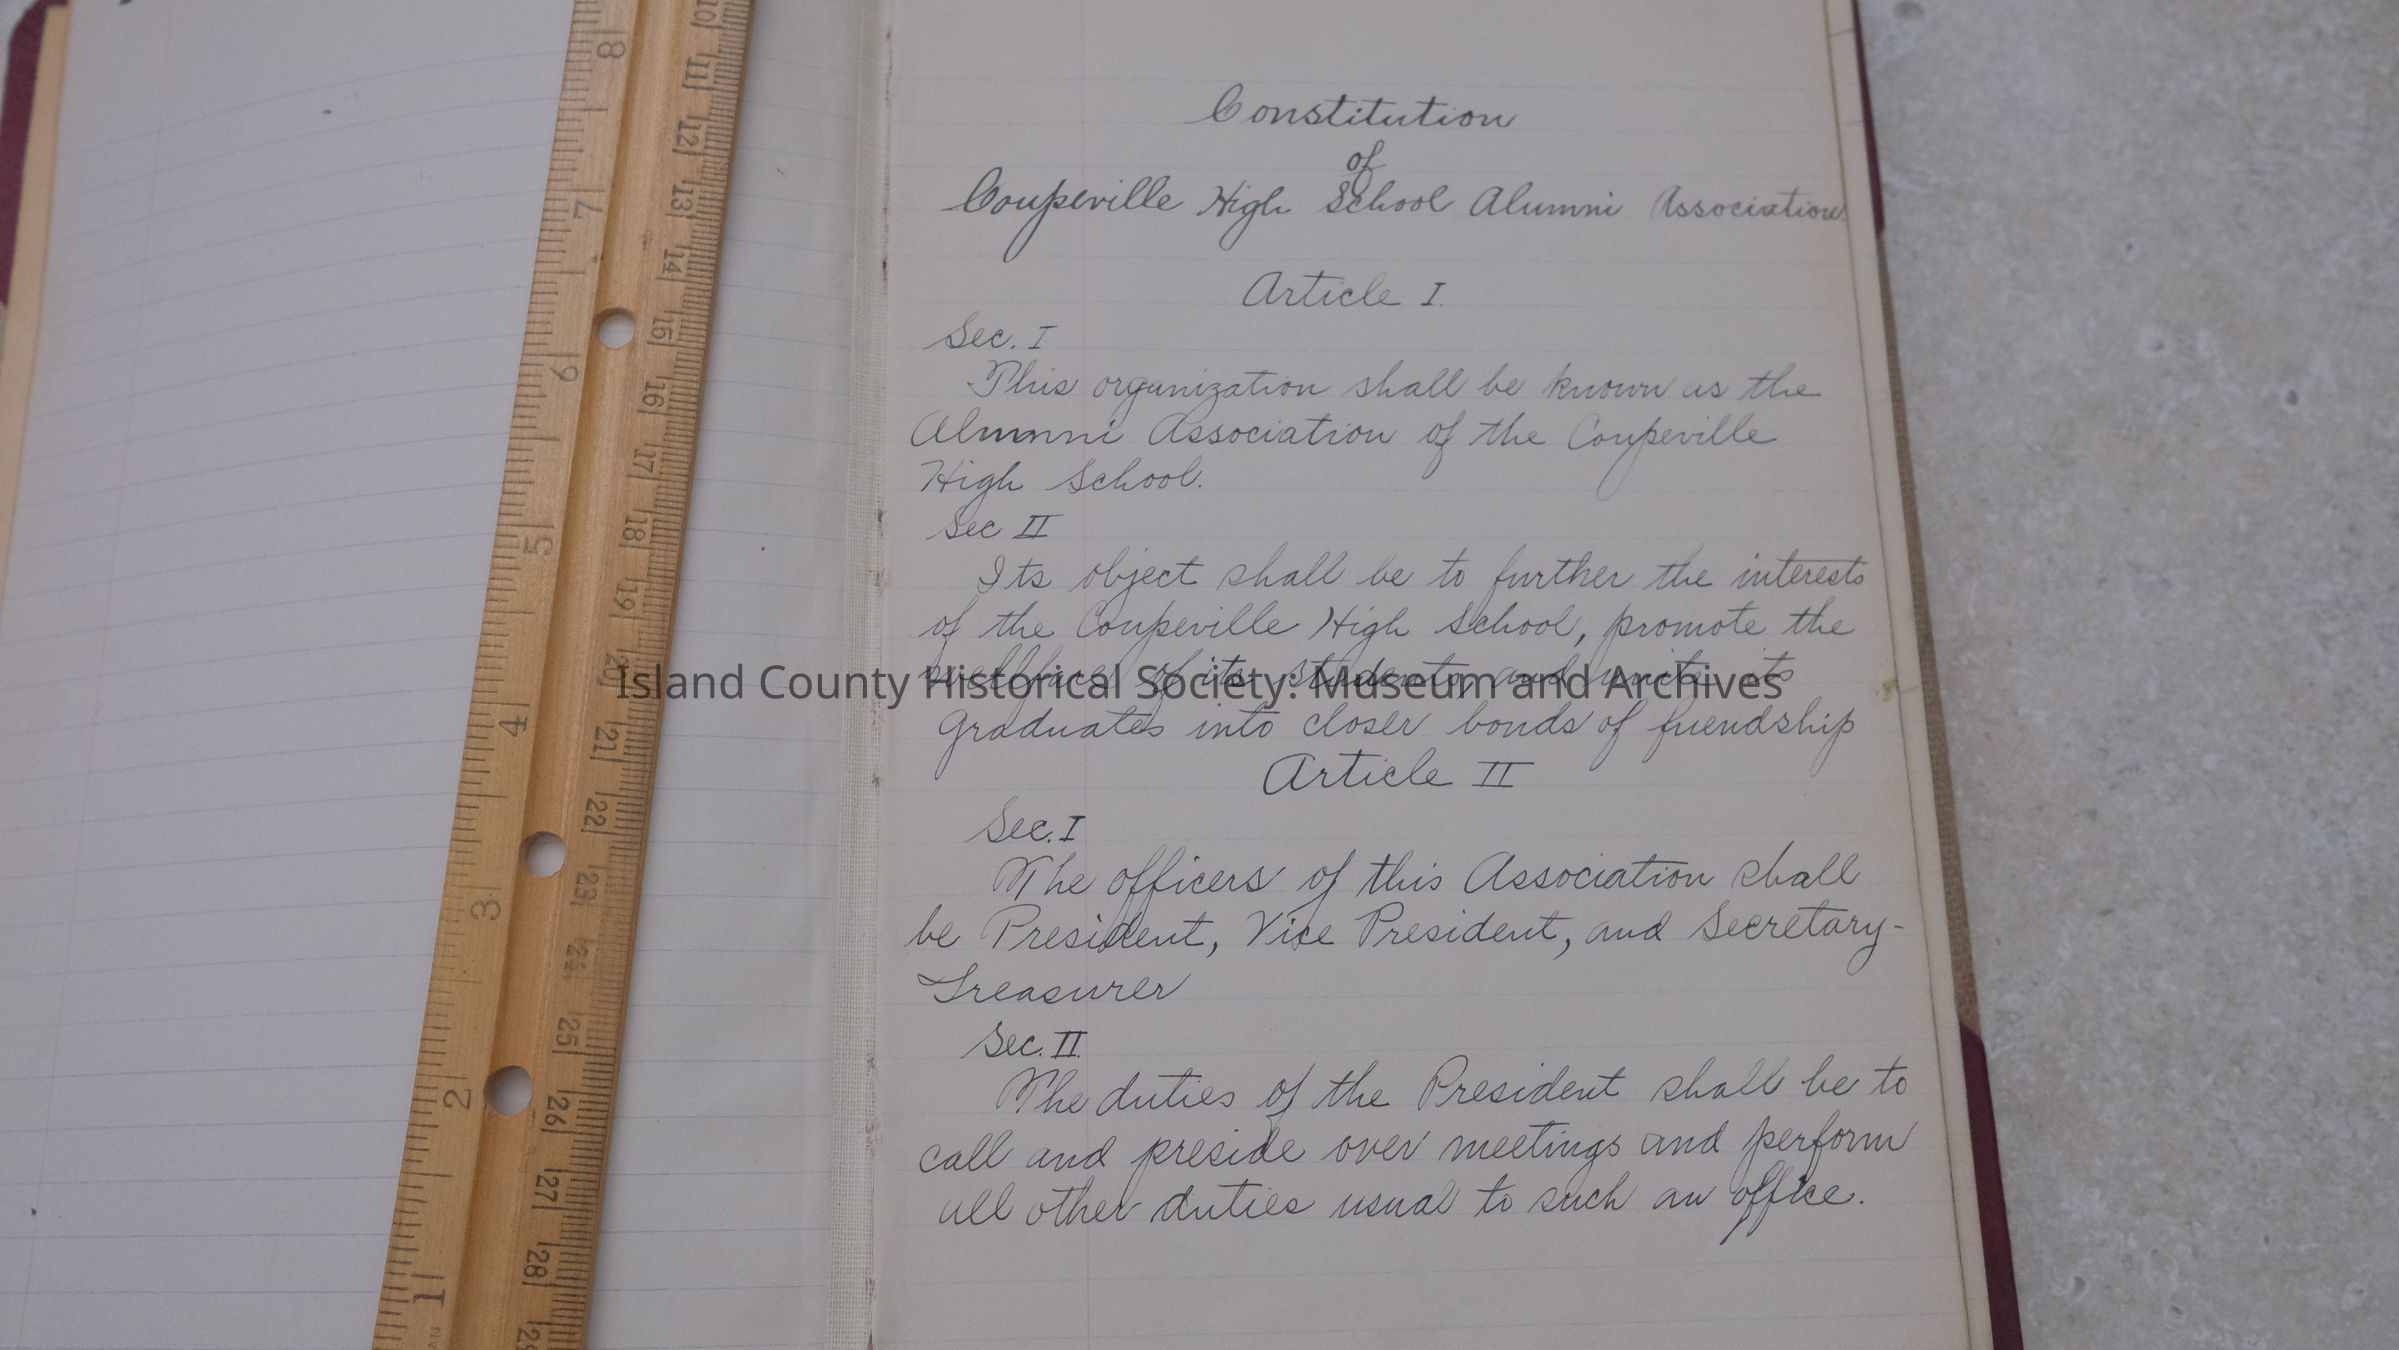 Constitution
of
Coupeville High School Alumni Association
Article I.
Sec. I
This organization shall be known as the
Alumni Association of the Coupeville
High School.
Sec II
Its object shall be to further the interests
of the Coupeville High School, promote the
wellfare of its students, and unite its
Island County Historical Society: Museum and Archives
graduates into closer bonds of friendship
Article II
Sec. I
The officers of this Association shall
be President, Vice President, and Secretary-
Treasurer
Sec. II.
The duties of the President shall be to
call and preside over meetings and perform
all other duties usual to such an office.
8
7
6
5
4
3
2
1
10
11
12
13
14
15
16
17
18
19
20
21
22
23
24
25
26
27
28